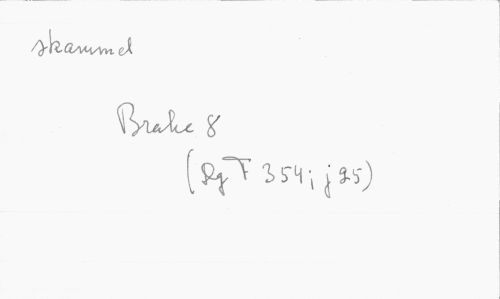 skammel
Brake 8
(Rg F 354; j 25)